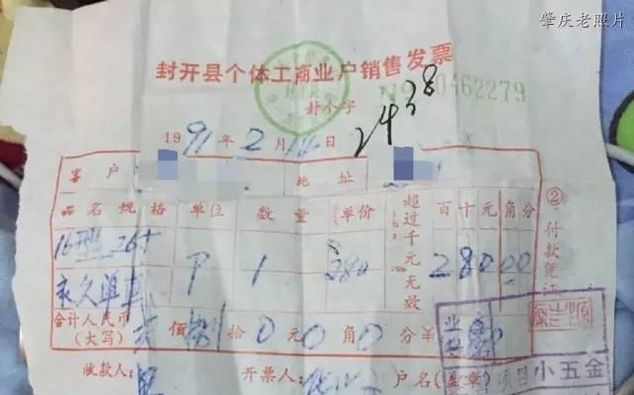 肇庆老照片
封开县个体工商业户销售发票
封个字 № 0462279
2438
1991年2月 日
客户 地址
品名规格 单位 数量 单价 超过千元无效 百十元角分
16型 26寸 1 280 28000
永久单车
合计人民币(大写) 佰 拾0元0角0分 ¥
②付款凭证
收款人: 开票人: 户名(盖章)
项目小五金